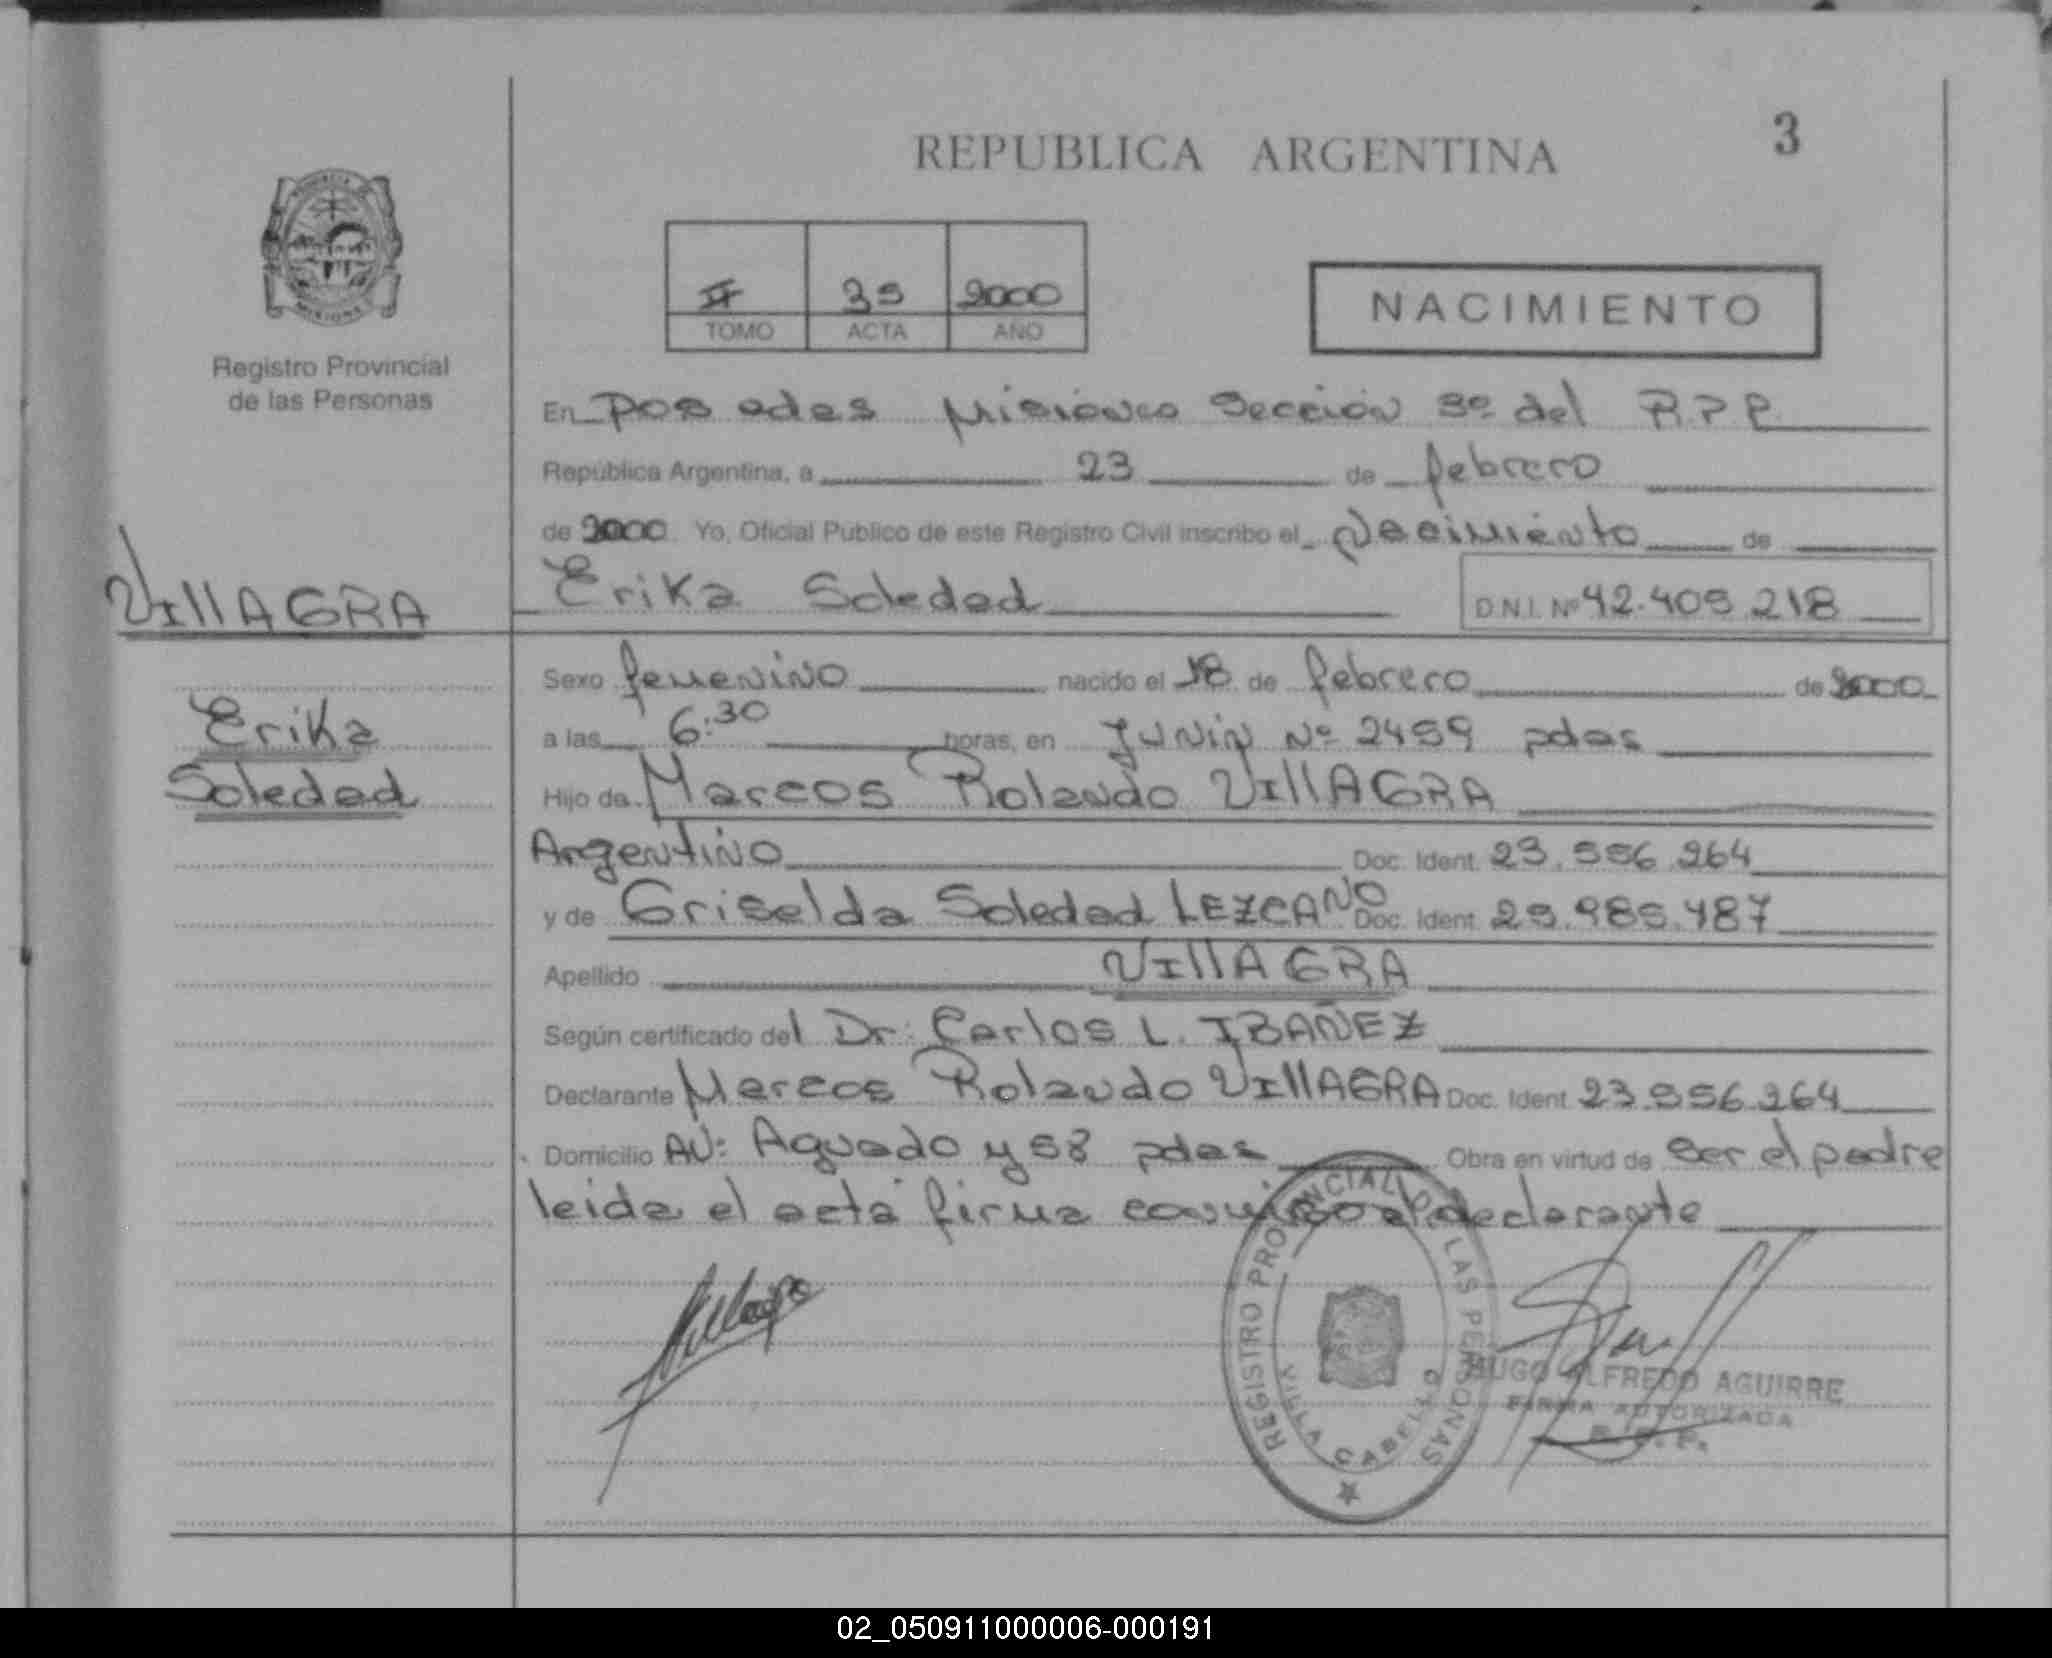 REPUBLICA ARGENTINA
3
II 35 2000
TOMO ACTA AÑO
NACIMIENTO
Registro Provincial
de las Personas
En Posadas Misiones Sección 3º del R.P.P.
República Argentina, a 23 de febrero
de 2000 Yo, Oficial Público de este Registro Civil inscribo el Nacimiento de
VIllAGRA
Erika Soledad D.N.I. Nº 42.405.218
Sexo femenino nacido el 18 de febrero de 2000
Erika
a las 6:30 horas, en Junin Nº 2459 pdas
Soledad
Hijo de Marcos Rolando VIllAGRA
Argentino Doc. Ident. 23.556.264
y de Griselda Soledad LEZCANO Doc. Ident. 25.985.487
Apellido VIllAGRA
Según certificado del Dr: Carlos L. IBAÑEZ
Declarante Marcos Rolando VIllAGRA Doc. Ident. 23.556.264
Domicilio AV: Aguado y 58 pdas Obra en virtud de ser el padre
leida el acta firma conmigo el declarante
REGISTRO PROVINCIAL DE LAS PERSONAS
VILLA CABELLO
HUGO ALFREDO AGUIRRE
FIRMA AUTORIZADA
R. P. P.
02_050911000006-000191